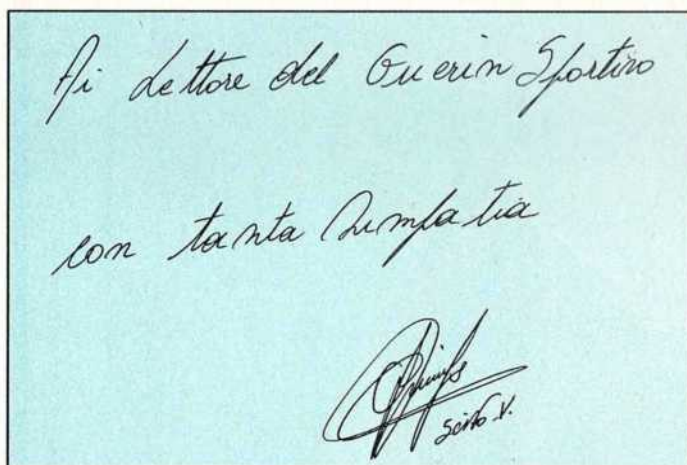 Ai Lettore del Guerin Sportivo
con tanta simpatia